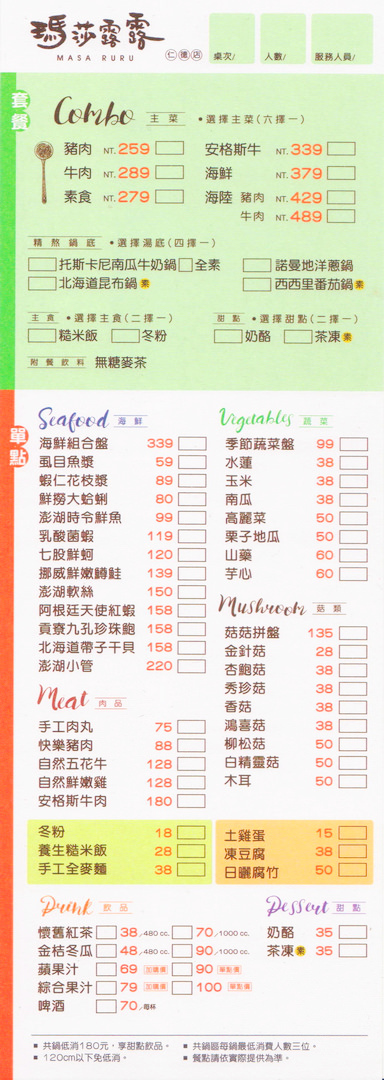 瑪莎露露
MASA RURU
仁德店
桌次/
人數/
服務人員/
套餐
Combo 主菜 •選擇主菜(六擇一)
豬肉 NT.259
安格斯牛 NT.339
牛肉 NT.289
海鮮 NT.379
素食 NT.279
海陸 豬肉 NT.429
牛肉 NT.489
精熬鍋底 •選擇湯底(四擇一)
托斯卡尼南瓜牛奶鍋 全素
諾曼地洋蔥鍋
北海道昆布鍋 素
西西里番茄鍋 素
主食 •選擇主食(二擇一)
甜點 •選擇甜點(二擇一)
糙米飯 冬粉
奶酪 茶凍 素
附餐飲料 無糖麥茶
單點
Seafood 海鮮
海鮮組合盤 339
虱目魚漿 59
蝦仁花枝漿 89
鮮撈大蛤蜊 80
澎湖時令鮮魚 99
乳酸菌蝦 119
七股鮮蚵 120
挪威鮮嫩鱒鮭 139
澎湖軟絲 150
阿根廷天使紅蝦 158
貢寮九孔珍珠鮑 158
北海道帶子干貝 158
澎湖小管 220
Meat 肉品
手工肉丸 75
快樂豬肉 88
自然五花牛 128
自然鮮嫩雞 128
安格斯牛肉 180
Vegetables 蔬菜
季節蔬菜盤 99
水蓮 38
玉米 38
南瓜 38
高麗菜 50
栗子地瓜 50
山藥 60
芋心 60
Mushroom 菇類
菇菇拼盤 135
金針菇 28
杏鮑菇 38
秀珍菇 38
香菇 38
鴻喜菇 38
柳松菇 50
白精靈菇 50
木耳 50
冬粉 18
養生糙米飯 28
手工全麥麵 38
土雞蛋 15
凍豆腐 38
日曬腐竹 50
Drink 飲品
懷舊紅茶 38/480 cc. 70/1000 cc.
金桔冬瓜 48/480 cc. 90/1000 cc.
蘋果汁 69 加購價 90 單點價
綜合果汁 79 加購價 100 單點價
啤酒 70/每杯
Dessert 甜點
奶酪 35
茶凍 素 35
▪ 共鍋低消180元，享甜點飲品。
▪ 120cm以下免低消。
▪ 共鍋區每鍋最低消費人數三位。
▪ 餐點請依實際提供為準。